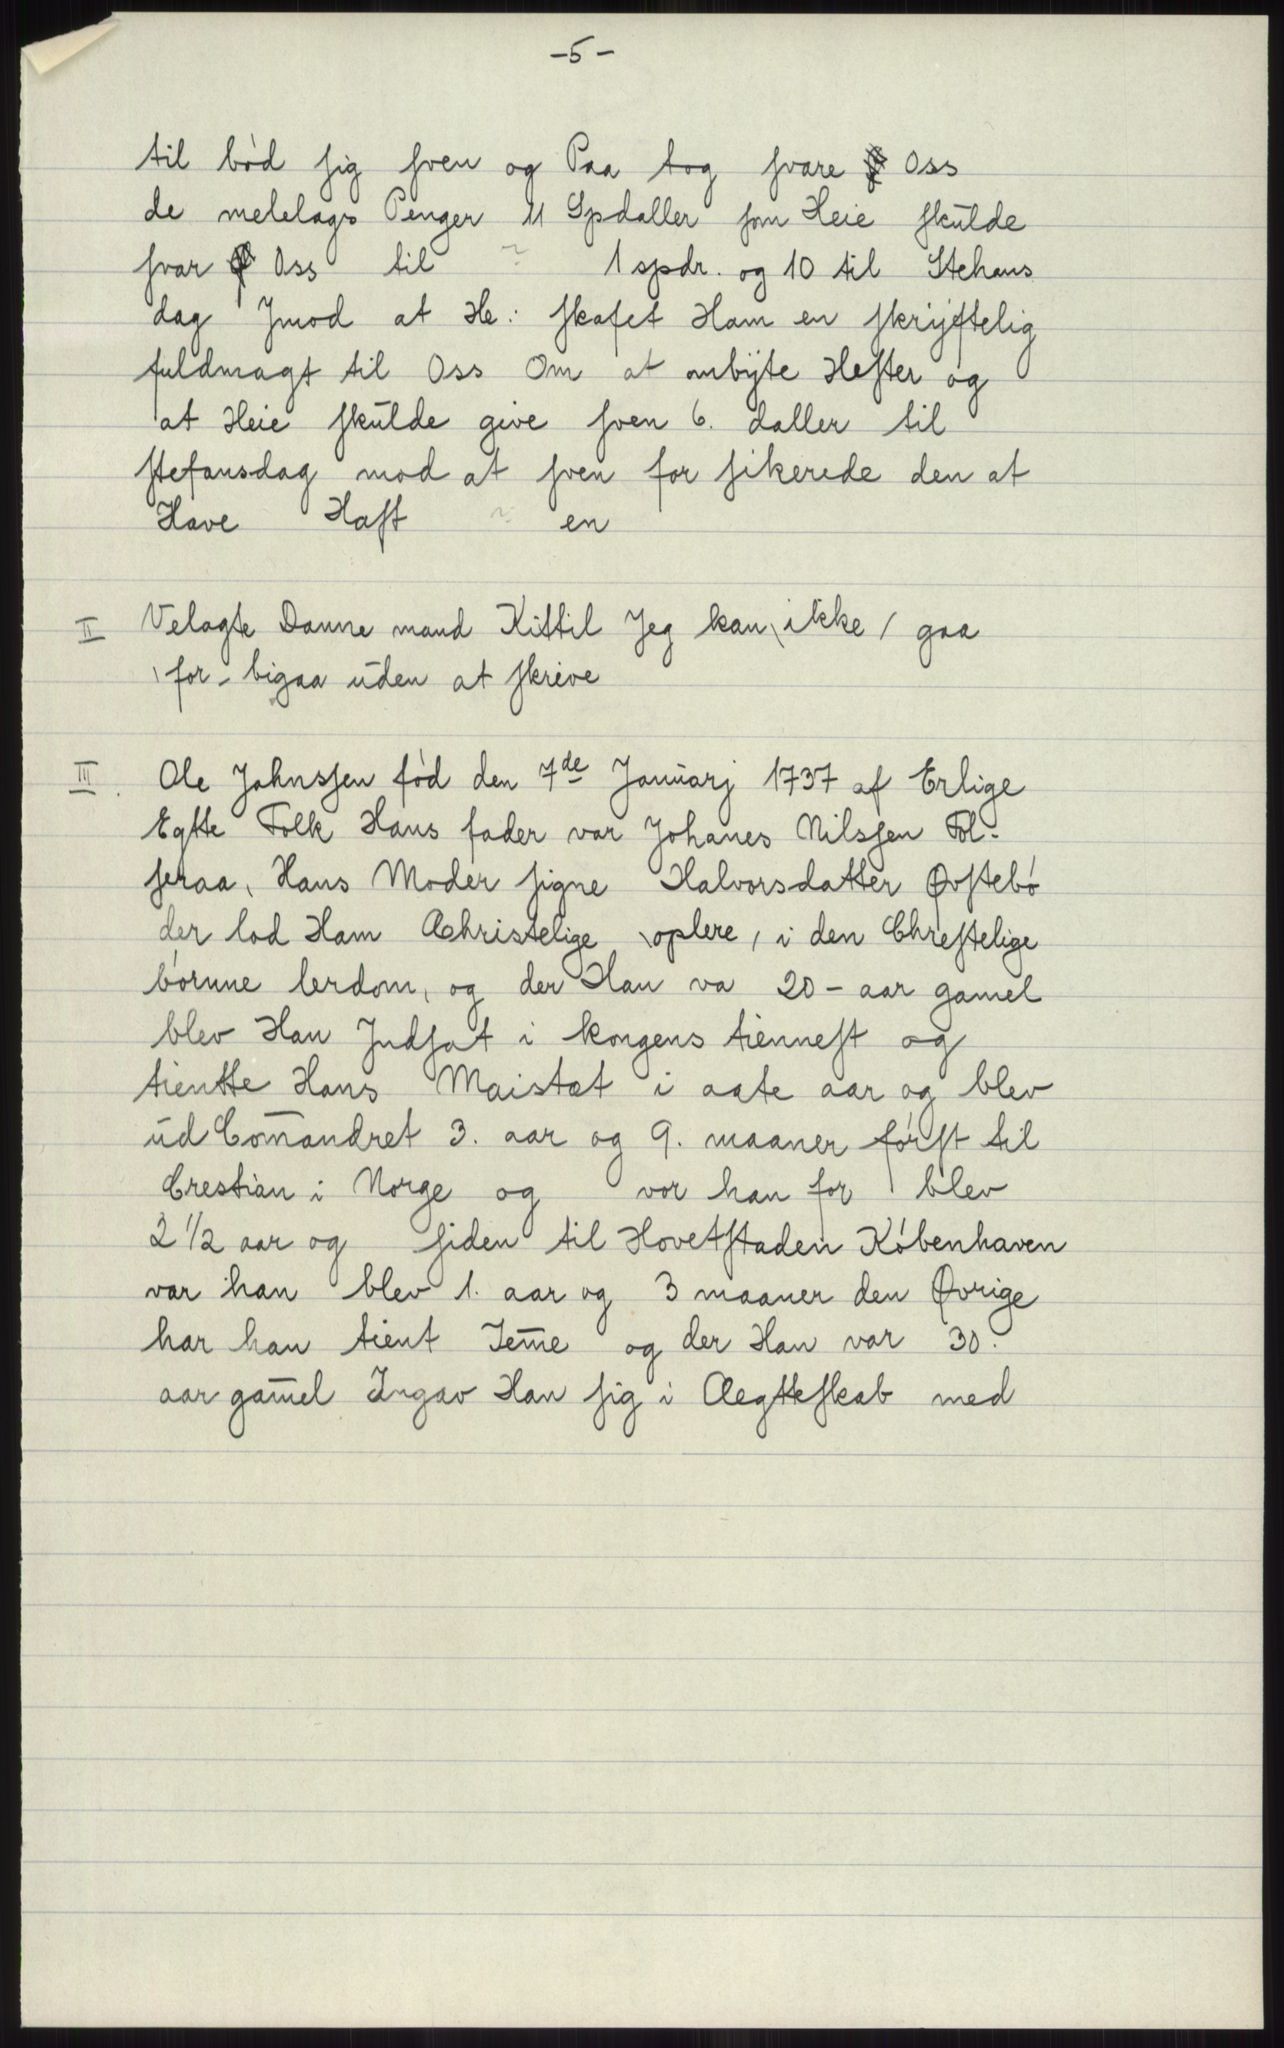 -5-
til bød sig sven og Paa tog svare Oss
de melelags Penger 11 Spdaller som Heie skulde
svar Oss til ~ 1 spdr. og 10 til Stehans
dag Jmod at He: skafet Ham en skryftelig
fuldmagt til Oss Om at ombyte Hester og
at Heie skulde give sven 6. daller til
stefansdag mod at sven for sikerede den at
Have Haft ~ en
II Velagte Danne mand Kittil Jeg kan \ ikke / gaa
\ for - bigaa uden at skrive
III. Ole Johnssen fød den 7de Januarj 1737 af Erlige
Egtte Folk Hans fader var Johanes Nilssen Fol-
seraa, Hans Moder signe Halvorsdatter Øvstebø
der lod Ham Christelige \ oplere / i den Chrestelige
børnne lerdom, og der Han va 20 - aar gamel
blev Han Indsat i kongens tiennest og
tientte Hans Maistæt i aate aar og blev
ud Comandret 3. aar og 9. maaner først til
Crestian i Norge og vor han for blev
2 1/2 aar og siden til Hovetstaden København
var han blev 1. aar og 3 maaner den Øvrige
har han tient Jeme og der Han var 30.
aar gamel Ingav Han sig i Aegtteskab med